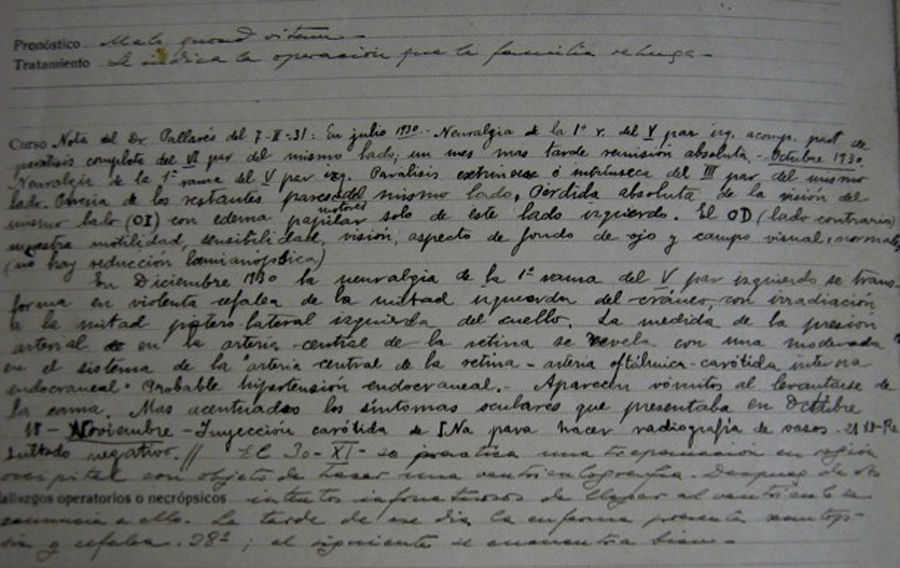 Pronóstico Malo quoad vitam
Tratamiento Se indica la operación que la familia rehusa
Curso Nota del Dr Pallarés del 7-II-31: En julio 1930 - Neuralgia de la 1ª r. del V par izq. acomp. de
parálisis completa del VI par del mismo lado; un mes mas tarde remisión absoluta. - Octubre 1930,
Neuralgia de la 1ª rama del V par izq. Parálisis extrínseca é intrínseca del III par del mismo
lado. Paresia de los restantes pares motores del mismo lado. Pérdida absoluta de la visión del
mismo lado (OI) con edema papilar solo de este lado izquierdo. El OD (lado contrario)
muestra motilidad, sensibilidad, visión, aspecto de fondo de ojo y campo visual, normales
(no hay reducción hemianóptica)
En Diciembre 1930 la neuralgia de la 1ª rama del V par izquierdo se trans-
forma en violenta cefalea de la mitad izquierda del cráneo, con irradiación
a la mitad póstero lateral izquierda del cuello. La medida de la presión
arterial en la arteria central de la retina se revela con una moderada
en el sistema de la arteria central de la retina - arteria oftálmica - carótida interna
endocraneal. Probable hipertensión endocraneal. - Aparecen vómitos al levantarse de
la cama. Mas acentuados los síntomas oculares que presentaba en Octubre
18 - Noviembre - Inyección carótida de INa para hacer radiografía de vasos - Re
sultado negativo. // El 30-XI- se practica una trepanación en región
occipital con objeto de hacer una ventriculografía. Despues de
allazgos operatorios o necrópsicos intentos infructuosos de llegar al ventriculo se
renuncia a ello. La tarde de ese dia la enferma presenta
y cefalea. 38º; el siguiente se encuentra bien.